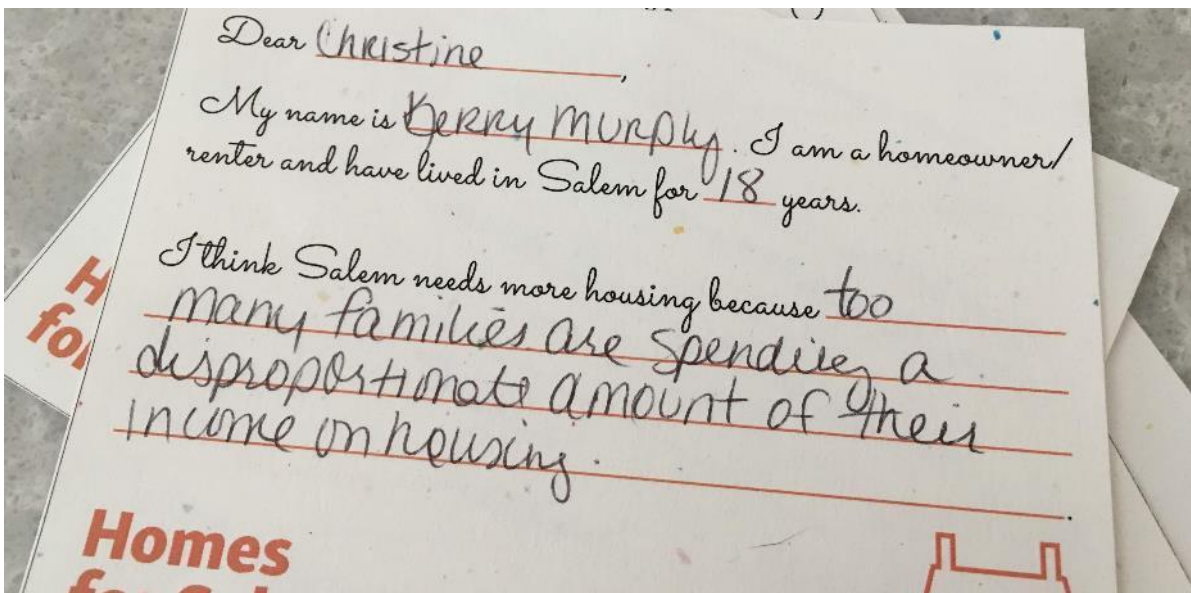 Dear Christine,
My name is Kerry Murphy. I am a homeowner/
renter and have lived in Salem for 18 years.
I think Salem needs more housing because too
many families are spending a
disproportionate amount of their
income on housing.
.
H
Homes
for
for Sal